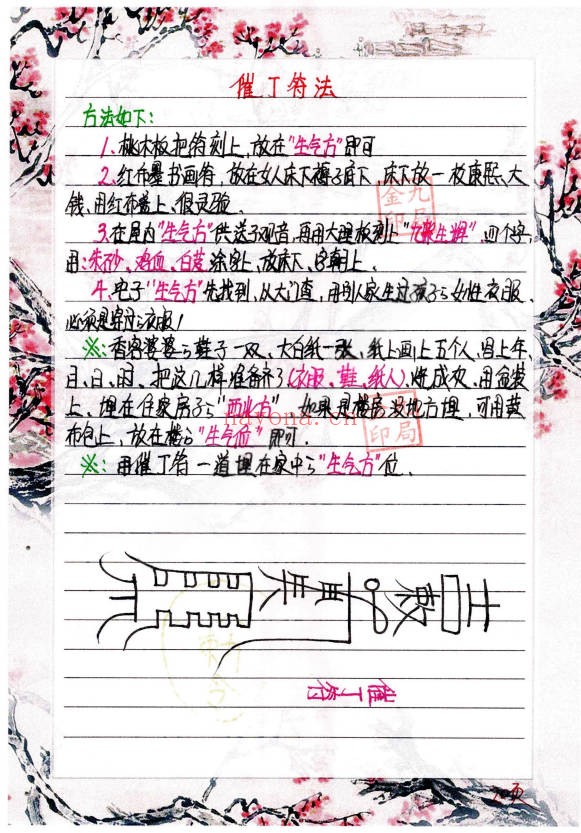 催丁符法
方法如下:
1、桃木板把符刻上,放在"生气方"即可
2、红布墨书画符,放在女人床下褥子底下,床下放一枚康熙大
钱,用红布叠上、很灵验。
3、在屋内"生气方"供送子观音,再用大理板刻上"九紫生辉"四个字,
用:朱砂、鸡血、白芨涂字上,放床下、字朝上。
4、电子"生气方"先找到,从大门查,用别人家生过孩子的女性衣服,
必须是穿过的衣服!
※:香客婆婆的鞋子一双、大白纸一张、纸上画上五个人,写上年、
月、日、时、把这几样准备齐了(衣服、鞋、纸人)烧成灰、用盒装
上、埋在住家房子的"西北方"。如果是楼房没地方埋,可用黄
布包上,放在楼的"生气位"即可.
※:再催丁符一道埋在家中的"生气方"位.
nayona.cn
催丁符
页